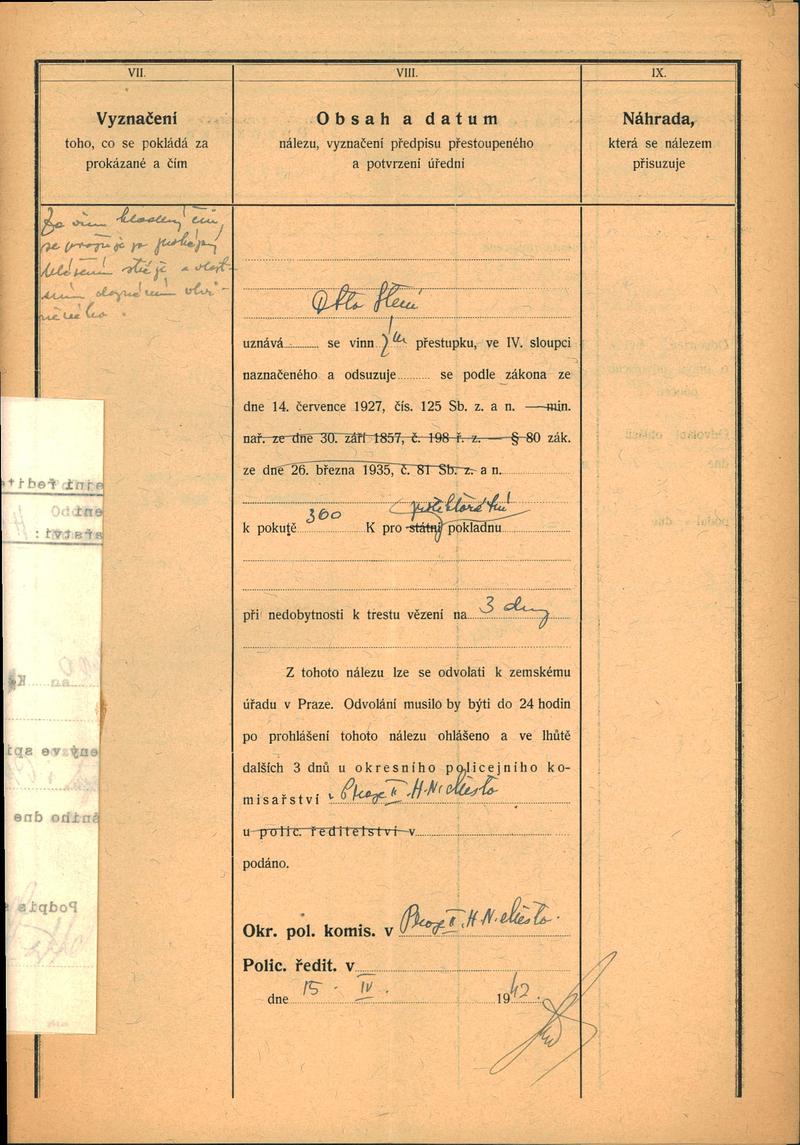 VII.
Vyznačení
toho, co se pokládá za
prokázané a čím
VIII.
Obsah a datum
nálezu, vyznačení předpisu přestoupeného
a potvrzení úřední
IX.
Náhrada,
která se nálezem
přisuzuje
Za vinu kladený čin
se
hlášením stráže a vlast-
ním doznáním obvi-
něného.
Otto
uznává se vinn ým přestupku, ve IV. sloupci
naznačeného a odsuzuje se podle zákona ze
dne 14. července 1927, čís. 125 Sb. z. a n. — min.
nař. ze dne 30. září 1857, č. 198 ř. z. — § 80 zák.
ze dne 26. března 1935, č. 81 Sb. z. a n.
protektorátní
k pokutě 300 K pro státní pokladnu
při nedobytnosti k trestu vězení na 3 dny
Z tohoto nálezu lze se odvolati k zemskému
úřadu v Praze. Odvolání musilo by býti do 24 hodin
po prohlášení tohoto nálezu ohlášeno a ve lhůtě
dalších 3 dnů u okresního policejního ko-
misařství v Praze II. H. N. Město
u polic. ředitelství v
podáno.
Okr. pol. komis. v Praze II. H. N. Město.
Polic. ředit. v
dne 15. IV. 1942.
Podpis